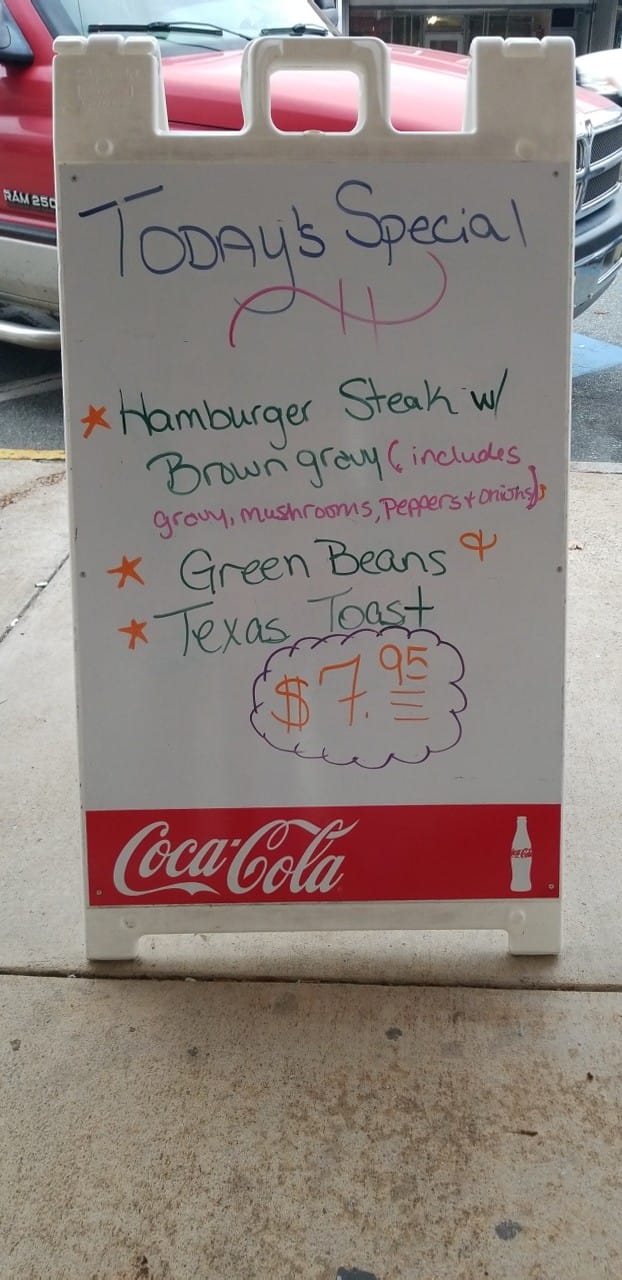 RAM 250
TODAY's Special
* Hamburger Steak w/
Brown gravy ( includes
gravy, mushrooms, Peppers + onions)
* Green Beans &
* Texas Toast
$7.95
Coca-Cola
Coca-Cola